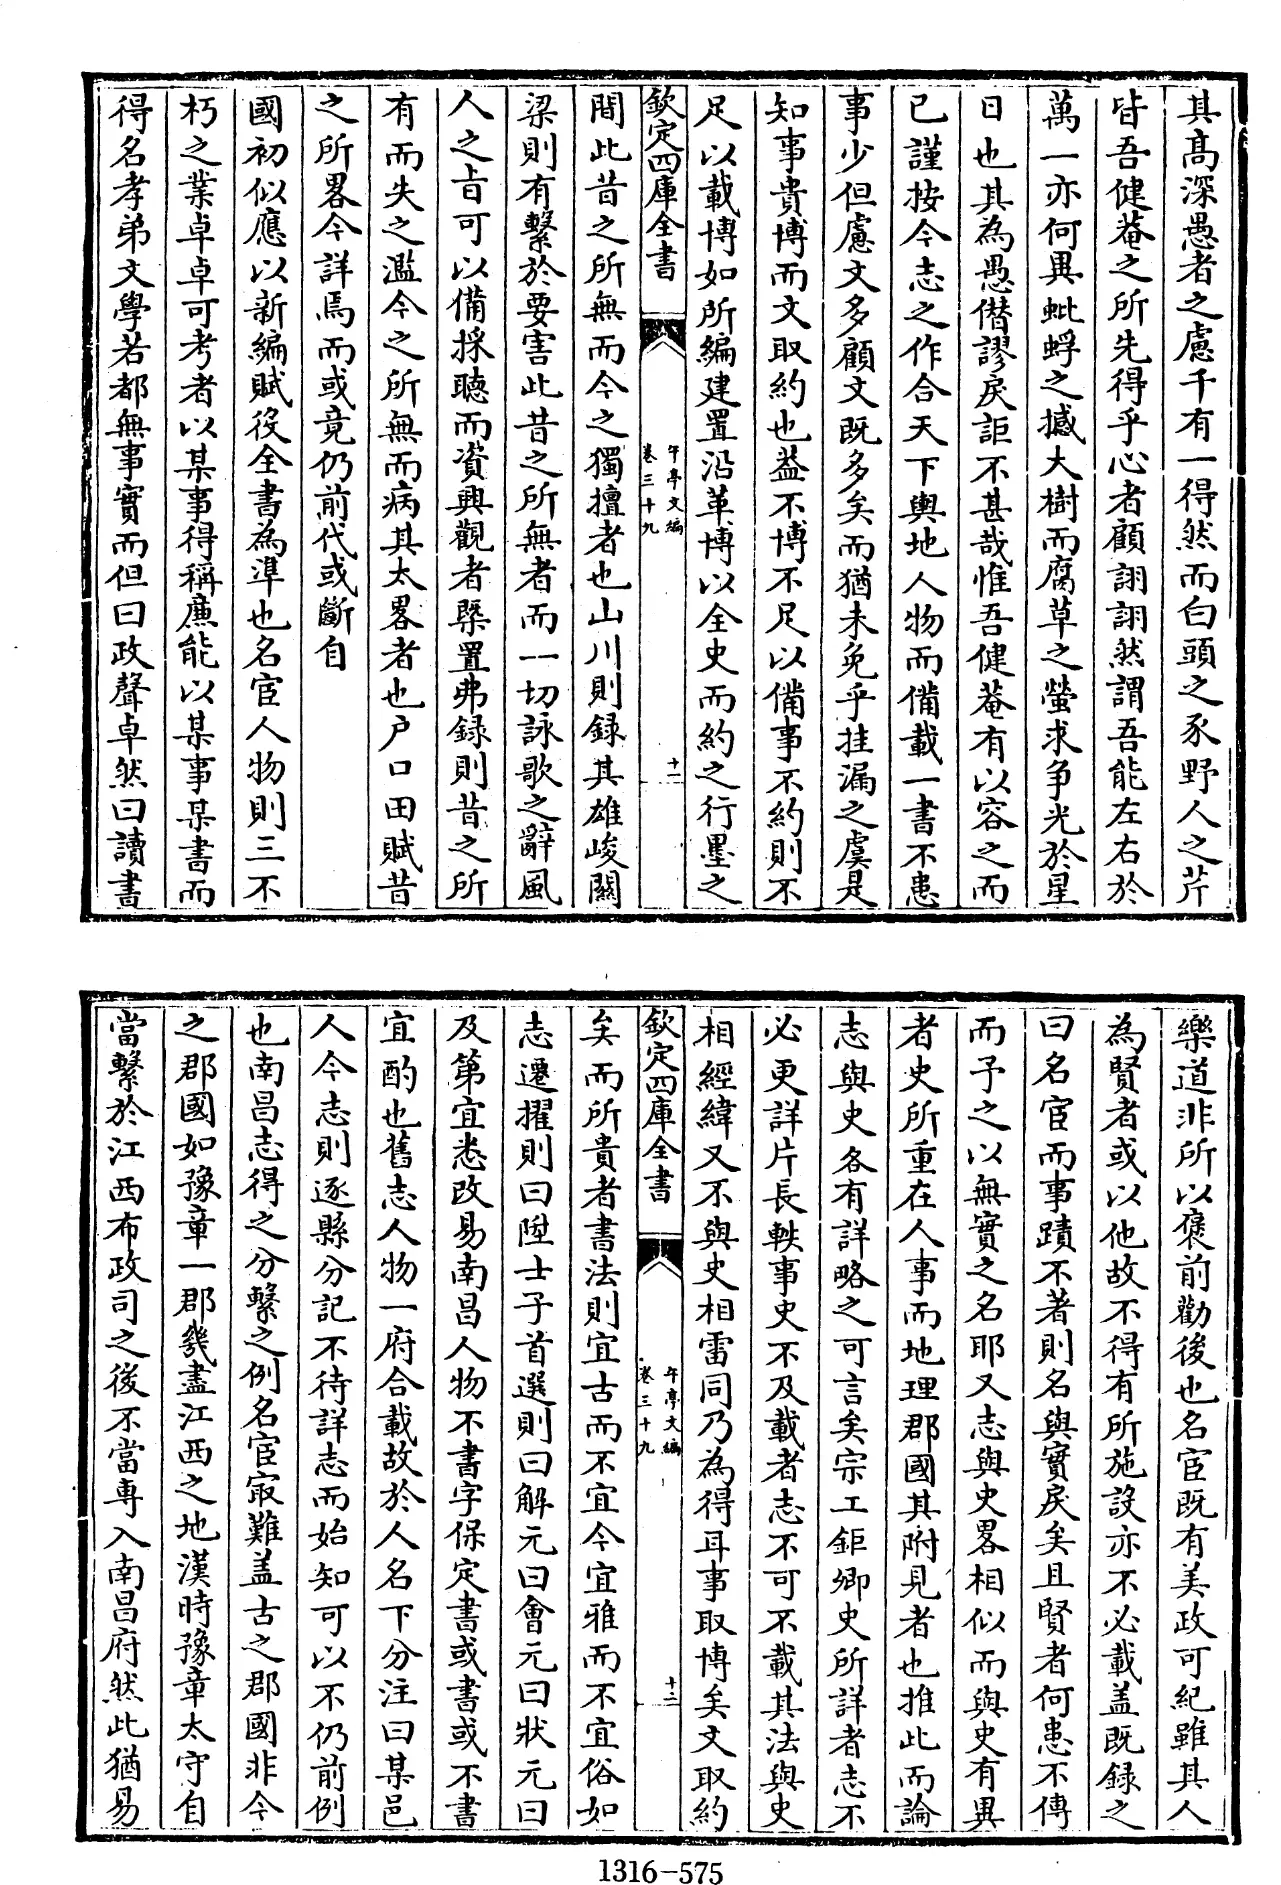 其高深愚者之慮千有一得然而白頭之豕野人之芹
皆吾健菴之所先得乎心者顧詡詡然謂吾能左右於
萬一亦何異蚍蜉之撼大樹而腐草之螢求争光於星
日也其為愚僣謬戾詎不甚哉惟吾健菴有以容之而
已謹按今志之作合天下輿地人物而備載一書不患
事少但慮文多顧文既多矣而猶未免乎挂漏之虞是
知事貴博而文取約也葢不博不足以備事不約則不
足以載博如所編建置沿革博以全史而約之行墨之
欽定四庫全書
午亭文編
卷三十九
十一
間此昔之所無而今之獨擅者也山川則録其雄峻關
梁則有繫於要害此昔之所無者而一切詠歌之辭風
人之旨可以備採聴而資興觀者槩置弗録則昔之所
有而失之濫今之所無而病其太畧者也户口田賦昔
之所畧今詳焉而或竟仍前代或斷自
國初似應以新編賦役全書為準也名宦人物則三不
朽之業卓卓可考者以某事得稱廉能以某事某書而
得名孝弟文學若都無事實而但曰政聲卓然曰讀書
樂道非所以褒前勸後也名宦既有美政可紀雖其人
為賢者或以他故不得有所施設亦不必載盖既録之
曰名宦而事蹟不著則名與實戾矣且賢者何患不傳
而予之以無實之名耶又志與史畧相似而與史有異
者史所重在人事而地理郡國其附見者也推此而論
志與史各有詳略之可言矣宗工鉅卿史所詳者志不
必更詳片長軼事史不及載者志不可不載其法與史
相經緯又不與史相雷同乃為得耳事取博矣文取約
欽定四庫全書
午亭文編
卷三十九
十二
矣而所貴者書法則宜古而不宜今宜雅而不宜俗如
志遷擢則曰陞士子首選則曰解元曰會元曰狀元曰
及第宜悉改易南昌人物不書字保定書或書或不書
宜酌也舊志人物一府合載故於人名下分注曰某邑
人今志則逐縣分記不待詳志而始知可以不仍前例
也南昌志得之分繫之例名宦㝡難盖古之郡國非今
之郡國如豫章一郡幾盡江西之地漢時豫章太守自
當繫於江西布政司之後不當專入南昌府然此猶易
1316-575